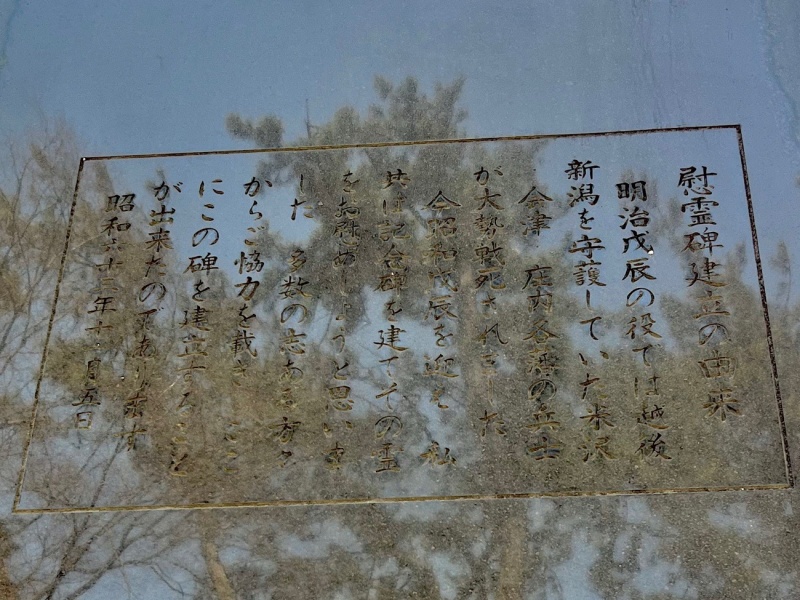 慰霊碑建立の由来
明治戊辰の役では越後
新潟を守護していた米沢
会津 庄内各藩の兵士
が大勢戦死されました
今昭和戊辰を迎え 私
共は記念碑を建てその霊
をお慰めしようと思いま
した 多数の志ある方々
からご協力を戴き ここ
にこの碑を建立すること
が出来たのであります
昭和六十三年十月五日